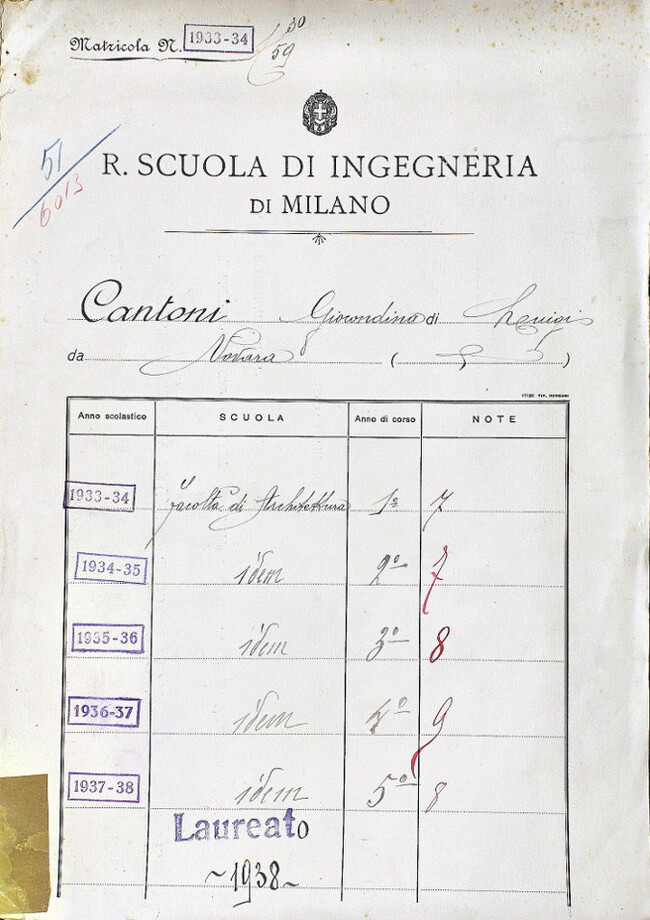 Matricola N. 1933-34 30
59
51
6013
R. SCUOLA DI INGEGNERIA
DI MILANO
Cantoni Giocondina di Luigi
da Novara ( )
Anno scolastico SCUOLA Anno di corso NOTE
1933-34 Facoltà di Architettura 1º 7
1934-35 idem 2º 7
1935-36 idem 3º 8
1936-37 idem 4º 9
1937-38 idem 5º 8
Laureato
~1938~